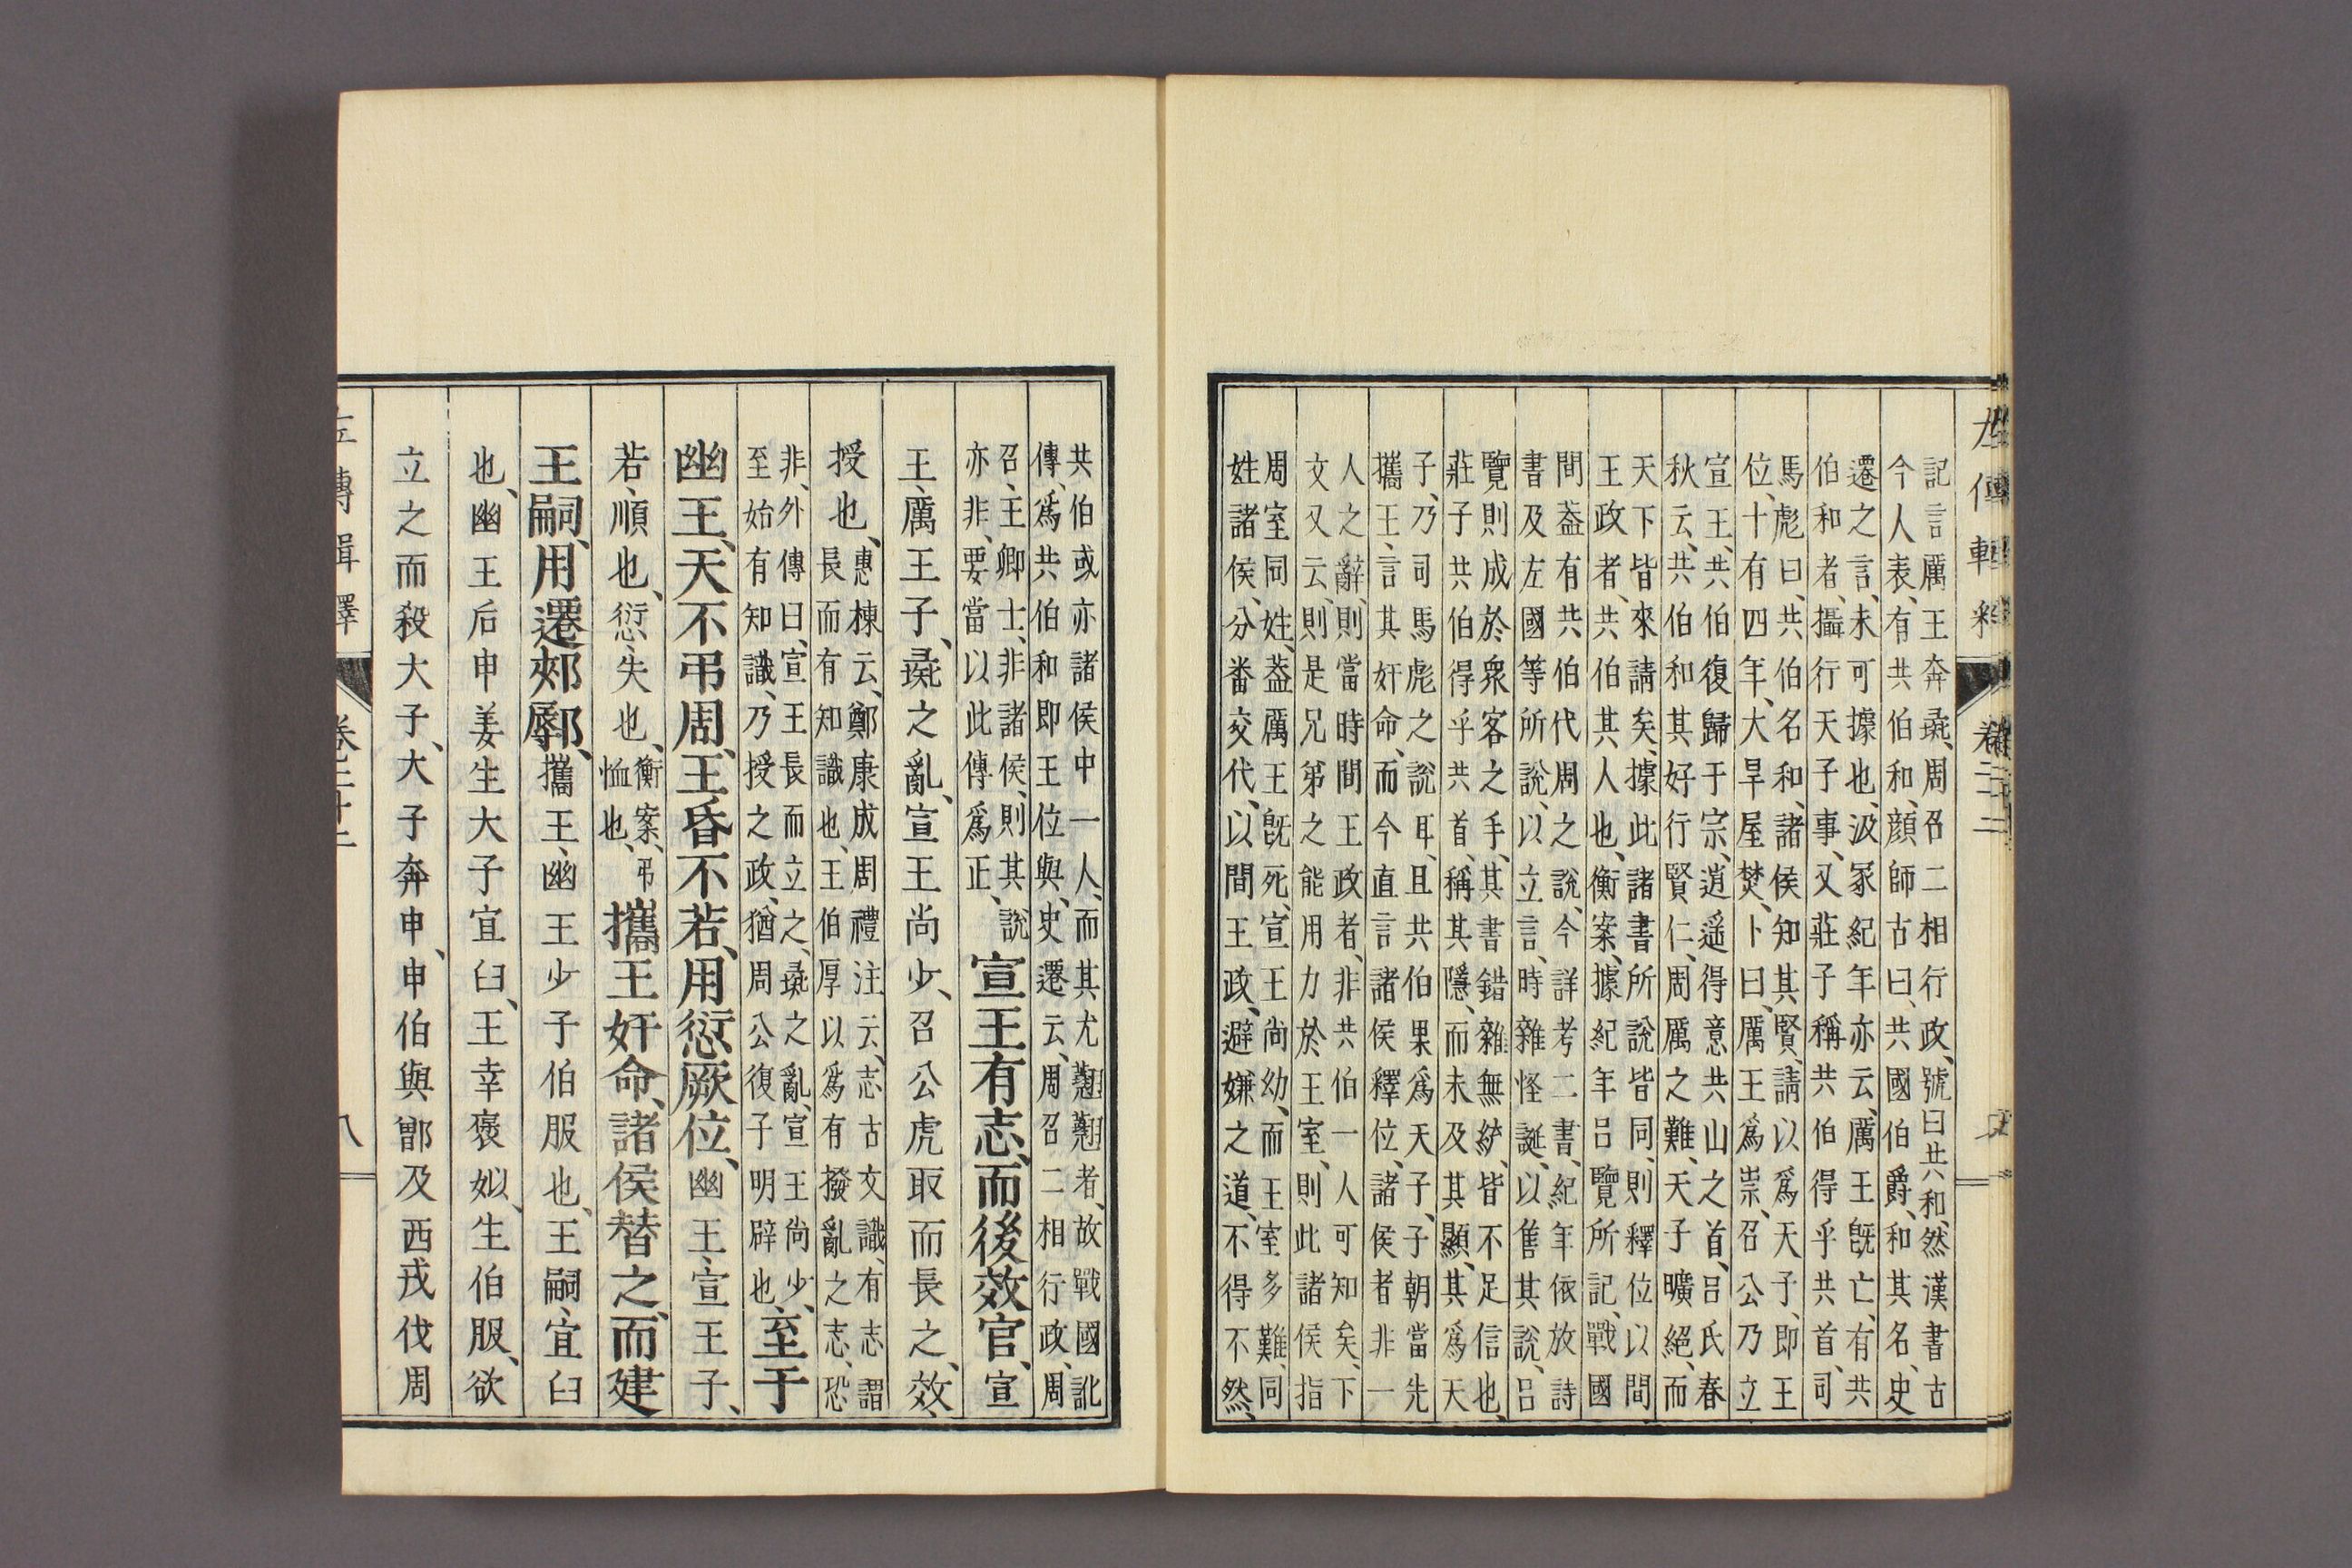 記言厲王奔彘、周召二相行政、號曰共和、然漢書古
今人表、有共伯和、顏師古曰、共國伯爵、和其名、史
遷之言、未可據也、汲冢紀年亦云、厲王旣亡、有共
伯和者、攝行天子事、又莊子稱共伯得乎共首、司
馬彪曰、共伯名和、諸侯知其賢、請以爲天子、卽王
位、十有四年、大旱屋焚、卜曰、厲王爲祟、召公乃立
宣王、共伯復歸于宗、逍遥得意共山之首、呂氏春
秋云、共伯和其好行賢仁、周厲之難、天子曠絕、而
天下皆來請矣、據此諸書所說皆同、則釋位以間
王政者、共伯其人也、衡案、據紀年呂覽所記、戰國
間葢有共伯代周之說、今詳考二書、紀年依放詩
書及左國等所說、以立言、時雜怪誕、以售其說、呂
覽則成於衆客之手、其書錯雜無統、皆不足信也、
莊子共伯得乎共首、稱其隱、而未及其顯、其爲天
子、乃司馬彪之說耳、且共伯果爲天子、子朝當先
攜王、言其奸命、而今直言諸侯釋位、諸侯者非一
人之辭、則當時間王政者、非共伯一人可知矣、下
文又云、則是兄弟之能用力於王室、則此諸侯指
周室同姓、葢厲王旣死、宣王尚幼、而王室多難、同
姓諸侯、分番交代、以間王政、避嫌之道、不得不然、
共伯或亦諸侯中一人、而其尤翹翹者、故戰國訛
傳、爲共伯和卽王位與、史遷云、周召二相行政、周
召、王卿士、非諸侯、則其說
亦非、要當以此傳爲正、
宣王有志、而後效官、宣
王、厲王子、彘之亂、宣王尚少、召公虎取而長之、效、
授也、
惠棟云、鄭康成周禮注云、志古文識、有志謂
長而有知識也、王伯厚以爲有撥亂之志、恐
非、外傳曰、宣王長而立之、彘之亂、宣王尚少、
至始有知識、乃授之政、猶周公復子明辟也、
至于
幽王、天不弔周、王昏不若、用愆厥位、幽王、宣王子、
若、順也、愆、失也、
衡案、弔
恤也、
攜王奸命、諸侯替之、而建
王嗣、用遷郟鄏、攜王、幽王少子伯服也、王嗣、宜臼
也、幽王后申姜生大子宜臼、王幸褒姒、生伯服、欲
立之而殺大子、大子奔申、申伯與鄫及西戎伐周
左傳輯釋 卷二十二 八